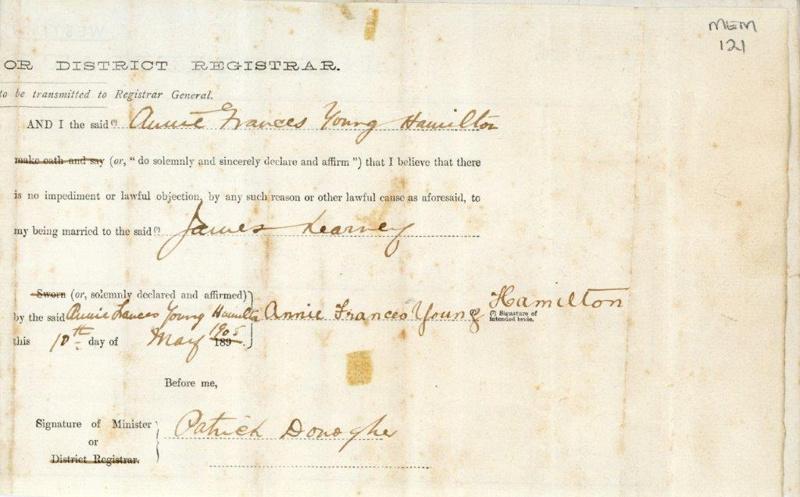 MEM
121
OR DISTRICT REGISTRAR.
to be transmitted to Registrar General.
AND I the said Annie Frances Young Hamilton
make oath and say (or, "do solemnly and sincerely declare and affirm") that I believe that there
is no impediment or lawful objection, by any such reason or other lawful cause as aforesaid, to
my being married to the said James Kearney
Sworn (or, solemnly declared and affirmed)
by the said Annie Frances Young Hamilton Annie Frances Young Hamilton
(f) Signature of
intended bride.
this 10th day of May 1905 189 .
Before me,
Signature of Minister Patrick Donogher
or
District Registrar.